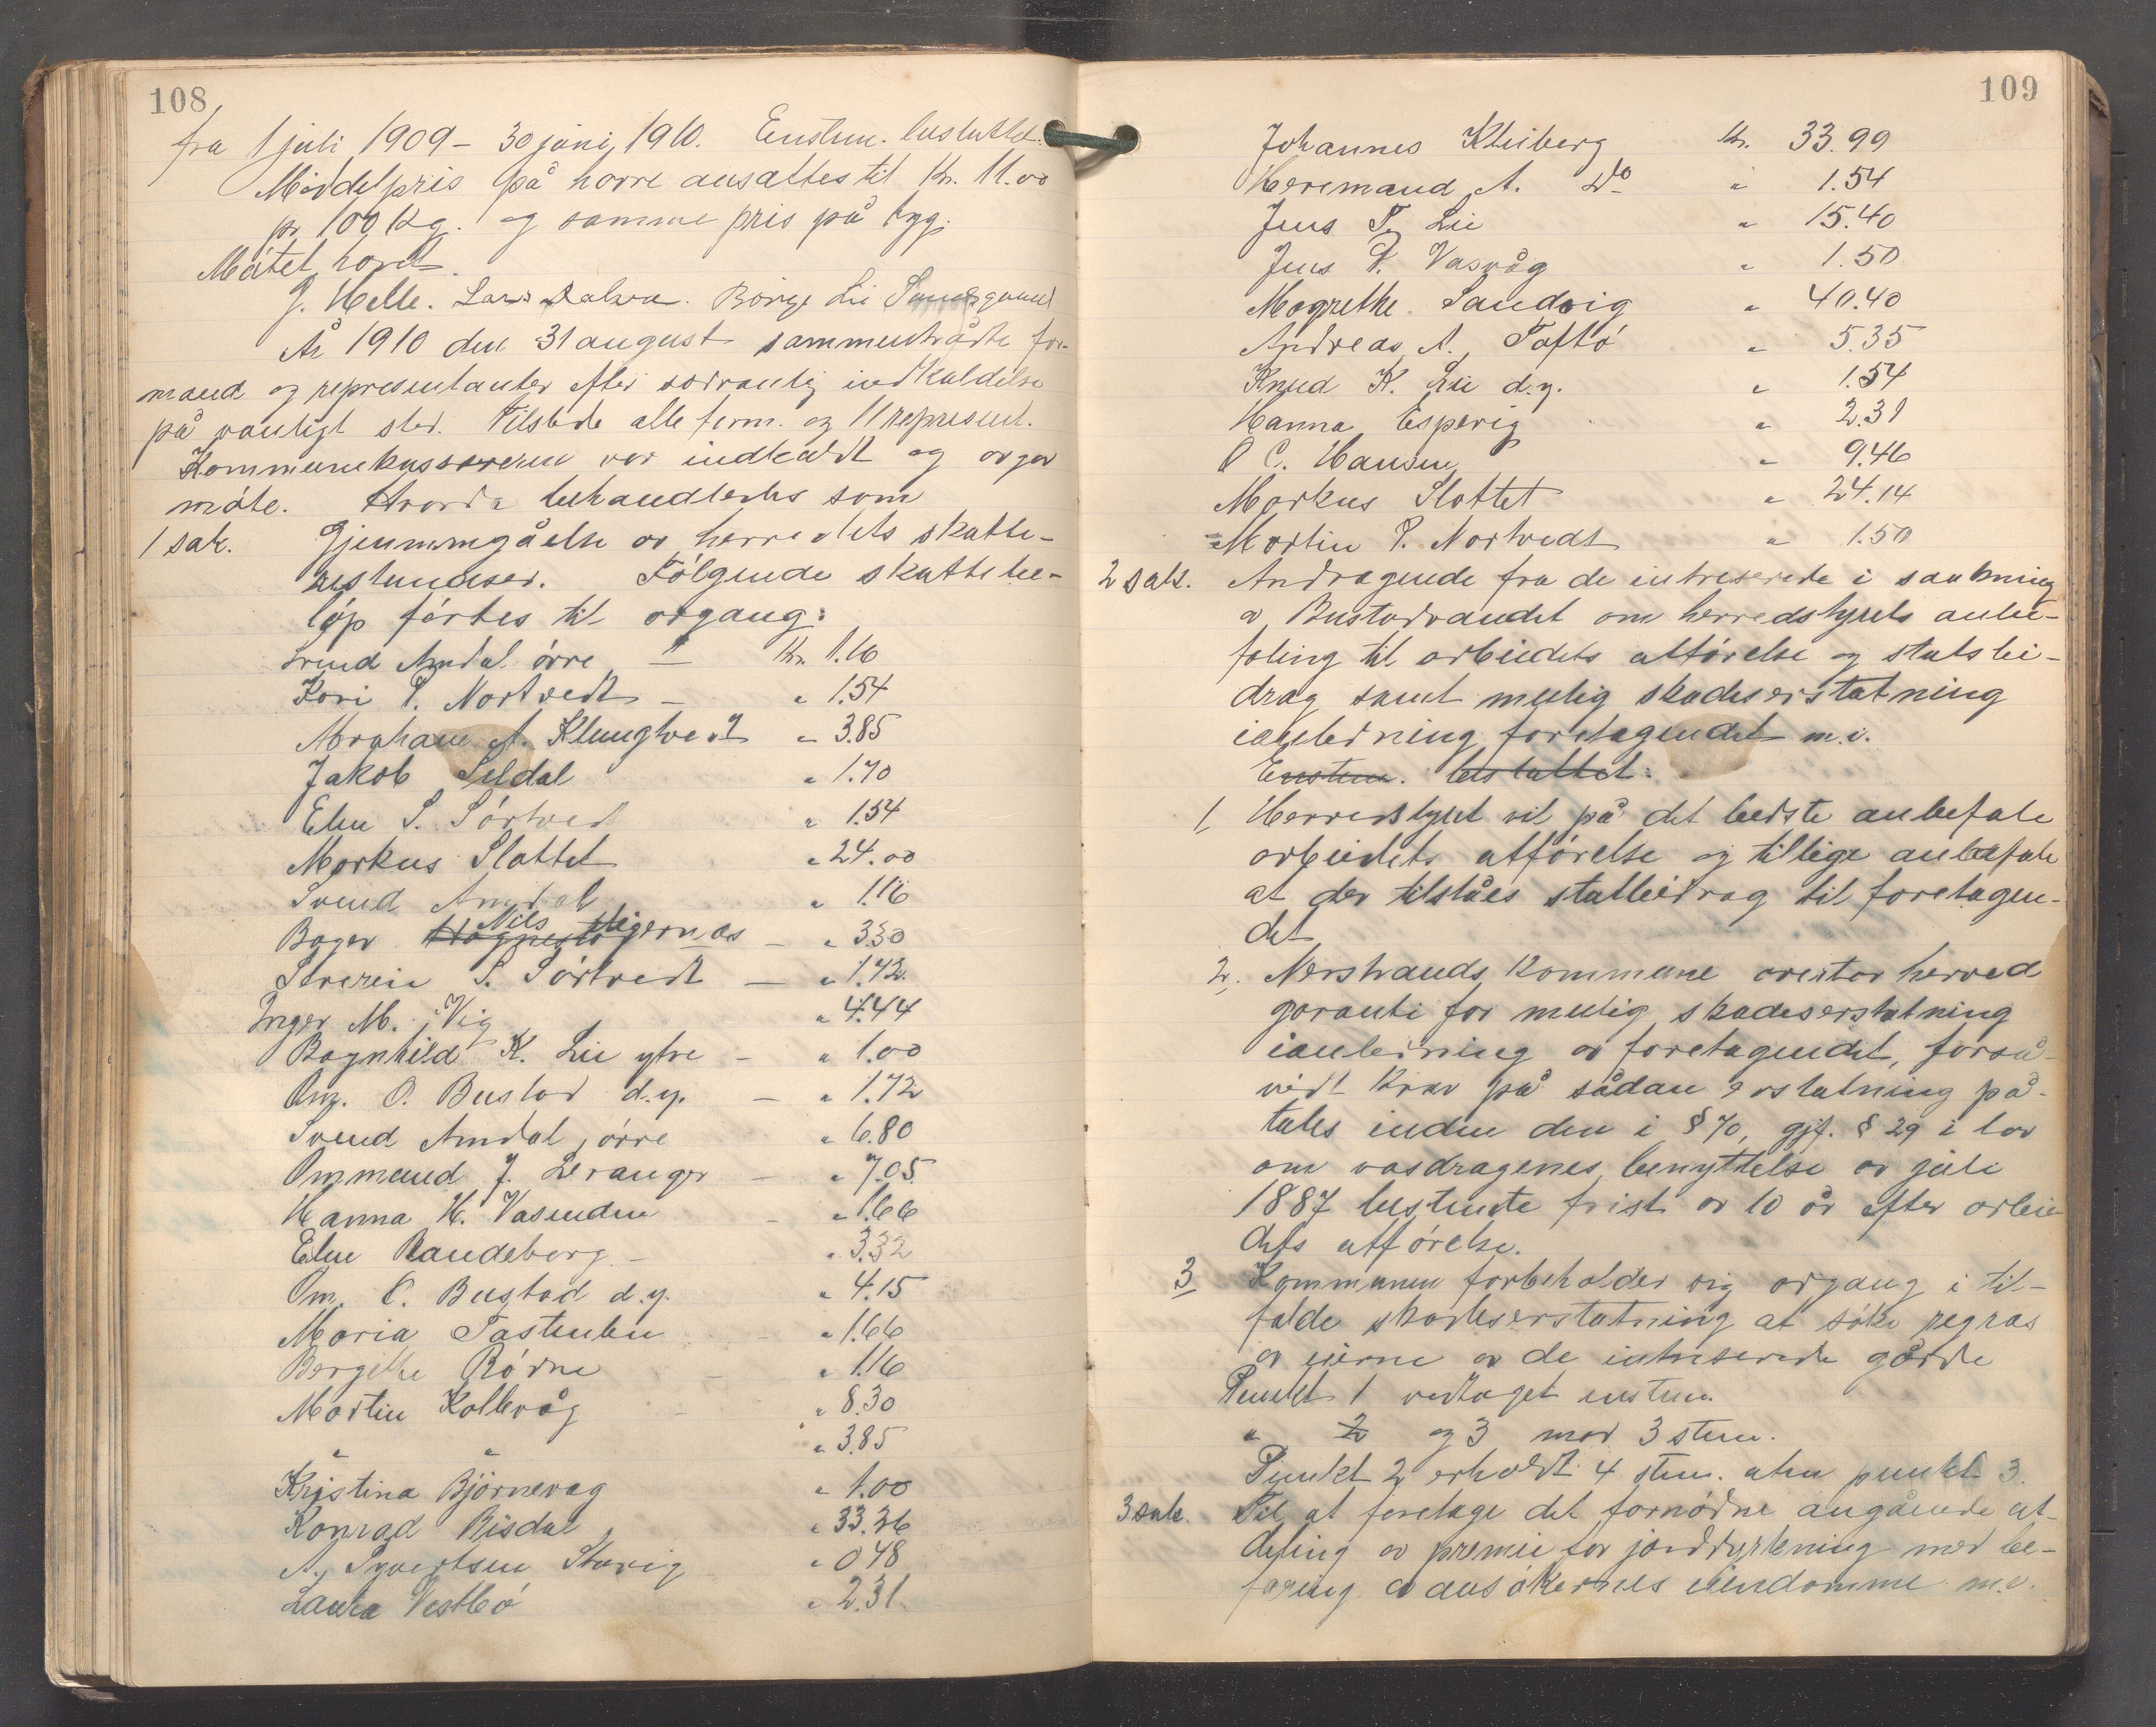 108
fra 1 juli 1909 - 30 juni 1910. Enstem. besluttet:
Middelpris på havre ansattes til Kr. 11.00
pr. 100 Kg. og samme pris på byg.
Mötet hævet.
J. Helle. Lars Dalva. Börge Lie
År 1910 den 31 august sammentrådte for-
mænd og representanter efter sedvanlig indkaldelse
på vanligt sted. Tilstede alle form. og 11 represent.
Kommunekassereren var indkaldt og avgav
möte. Hvorda behandledes som
1 sak. Gjennemgåelse av herredets skatte-
restanser. Følgende skattebe-
löp förtes til avgang:
Svend Amdal övre — Kr. 1.16
Kari P. Nortvedt — " 1.54
Abraham A. Klungtvedt " 3.85
Jakob Seldal " 1.70
Elen S. Sörtved " 1.54
Markus Slottet " 24.00
Svend Amdal " 1.16
Bager Nils Hegernæs — " 3.30
Severin S. Sörtvedt — " 1.72
Inger M. Vig " 4.44
Ragnhild K. Lie ytre — " 1.00
Om. O. Bustad d.y. — " 1.72
Svend Amdal, övre " 6.80
Ommund J. Leranger — " 7.05
Hanna H. Vasenden — " 1.66
Elen Randeberg — " 3.32
Om. O. Bustad d.y. " 4.15
Maria Tastenben — " 1.66
Bergithe Rödne — " 1.16
Martin Kollevåg — " 8.30
" " " 3.85
Kristina Björnevag " 1.00
Konrad Risdal " 33.36
A. Syvertsen Stavig " 0 48
Laura Vestbö " 2.31
109
Johannes Kleiberg Kr. 33.99
Heremand A. Do " 1.54
Jens T. Lie " 15.40
Jens P. Vasvåg " 1.50
Magrethe Sandvig " 40.40
Andreas A. Toftö " 5.35
Knud K. Lie d.y. " 1.54
Hanna Espevig " 2.31
O C. Hansen " 9.46
Markus Slottet " 24.14
Martin P. Nortvedt " 1.50
2 sak. Andragende fra de intreserede i sænkning
av Bustadvandet om herredstyrets anbe-
faling til arbeidets utförelse og statsbei-
drag samt mulig skadeserstatning
ianledning foretagendet m.v.
Enstem. besluttet:
1, Herredstyret vil på det bedste anbefale
arbeidets utförelse og tillige anbefale
at der tilståes statbeidrag til foretagen-
det
2, Nerstrands kommune overtar herved
garanti for mulig skadeserstatning
ianledning av foretagendet, forså-
vidt krav på sådan erstatning på-
tales inden den i § 70, gjf. § 29 i lov
om vasdragenes benyttelse av juli
1887 bestemte frist av 10 år efter arbei-
dets utförelse.
3 Kommunen forbeholder sig avgang i til-
fælde skadeserstatning at söke regras
av eierne av de intreserede gårde
Punkt 1 vedtaget enstem.
" 2 og 3 mod 3 stem.
Punkt 2 erholdt 4 stem. uten punkt 3.
3 sak. Til at foretage det fornödne angående ut-
deling av premie for jorddyrkning med be-
faring av ansökernes eiendomme m.v.